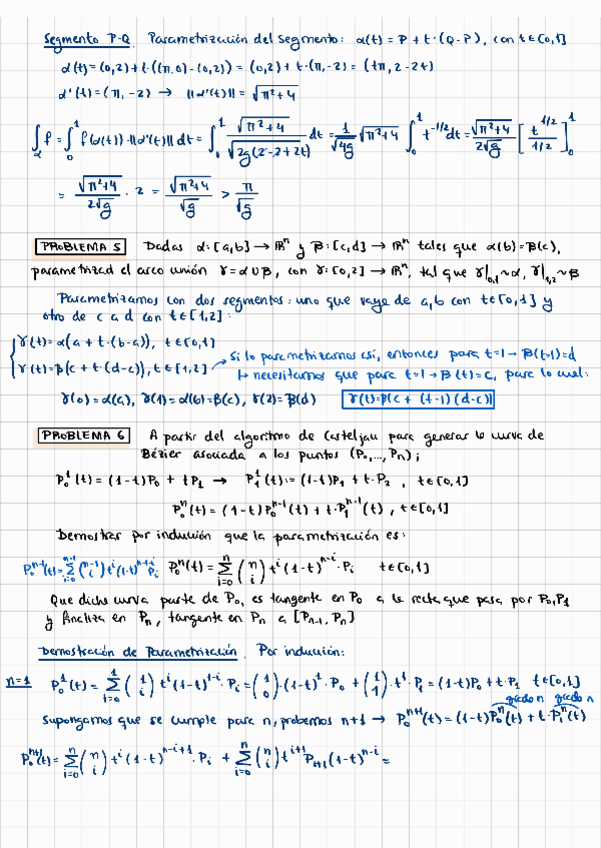 Segmento P-Q. Parametrización del segmento: α(t) = P + t·(Q-P), con t∈[0,1]
α(t) = (0,2) + t·((π,0)-(0,2)) = (0,2) + t·(π,-2) = (tπ, 2-2t)
α'(t) = (π,-2) → ||α'(t)|| = √(π²+4)
∫_α f = ∫_0^1 f(α(t))·||α'(t)|| dt = ∫_0^1 √(π²+4)/√(2g(2-2+2t)) dt = 1/√(4g) √(π²+4) ∫_0^1 t^(-1/2) dt = √(π²+4)/(2√g) [t^(1/2)/(1/2)]_0^1
= √(π²+4)/(2√g) · 2 = √(π²+4)/√g > π/√g
PROBLEMA 5 Dadas α:[a,b] → ℝⁿ y β:[c,d] → ℝⁿ tales que α(b)=β(c),
parametrizad el arco unión γ=α∪β, con γ:[0,2] → ℝⁿ, tal que γ|₀,₁~α, γ|₁,₂~β
Parametrizamos con dos segmentos: uno que vaya de a,b con t∈[0,1] y
otro de c a d con t∈[1,2]:
γ(t)=α(a + t·(b-a)), t∈[0,1]
γ(t)=β(c + t·(d-c)), t∈[1,2] → Si lo parametrizamos así, entonces para t=1 → β(t=1)=d
↳ necesitamos que para t=1 → β(t)=c, para lo cual:
γ(0)=α(a), γ(1)=α(b)=β(c), γ(2)=β(d) γ(t)=β(c + (t-1)(d-c))
PROBLEMA 6 A partir del algoritmo de Casteljau para generar la curva de
Bézier asociada a los puntos (P₀,...,Pₙ);
P₀¹(t) = (1-t)P₀ + tP₁ → P₁¹(t):= (1-t)P₁ + t·P₂ , t∈[0,1]
P₀ⁿ(t) = (1-t)P₀ⁿ⁻¹(t) + t·P₁ⁿ⁻¹(t) , t∈[0,1]
Demostrar por inducción que la parametrización es:
P₀ⁿ⁻¹(t)=∑_{i=0}^{n-1} (n-1 i) tⁱ(1-t)^{n-1-i} Pᵢ P₀ⁿ(t) = ∑_{i=0}^{n} (n i) tⁱ(1-t)^{n-i}·Pᵢ t∈[0,1]
Que dicha curva parte de P₀, es tangente en P₀ a la recta que pasa por P₀,P₁
y finaliza en Pₙ, tangente en Pₙ a [Pₙ₋₁, Pₙ]
Demostración de Parametrización. Por inducción:
n=1 P₀¹(t) = ∑_{i=0}^{1} (1 i) tⁱ(1-t)^{1-i}·Pᵢ = (1 0)·(1-t)¹·P₀ + (1 1)·t¹·P₁ = (1-t)P₀ + t·P₁ t∈[0,1]
grado n grado n
Supongamos que se cumple para n, probemos n+1 → P₀ⁿ⁺¹(t) = (1-t)P₀ⁿ(t) + t·P₁ⁿ(t)
P₀ⁿ⁺¹(t) = ∑_{i=0}^{n} (n i) tⁱ(1-t)^{n-i+1}·Pᵢ + ∑_{i=0}^{n} (n i) t^{i+1} Pᵢ₊₁(1-t)^{n-i} =